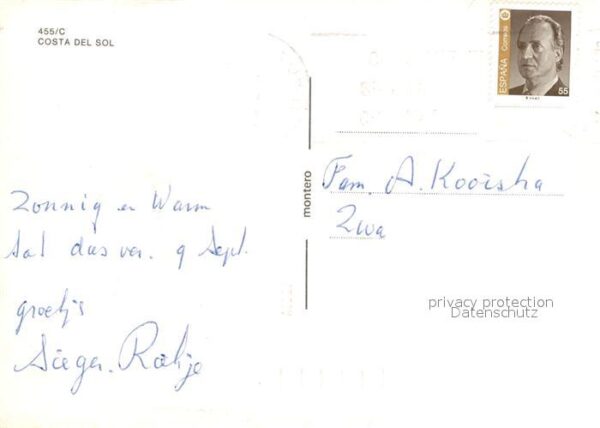 455/C
COSTA DEL SOL
ESPAÑA
Correos
55
montero
Zonnig en Warm
tot dus ver. 9 Sept.
groetjs
Fam. A. Kooistra
Zwa
privacy protection
Datenschutz